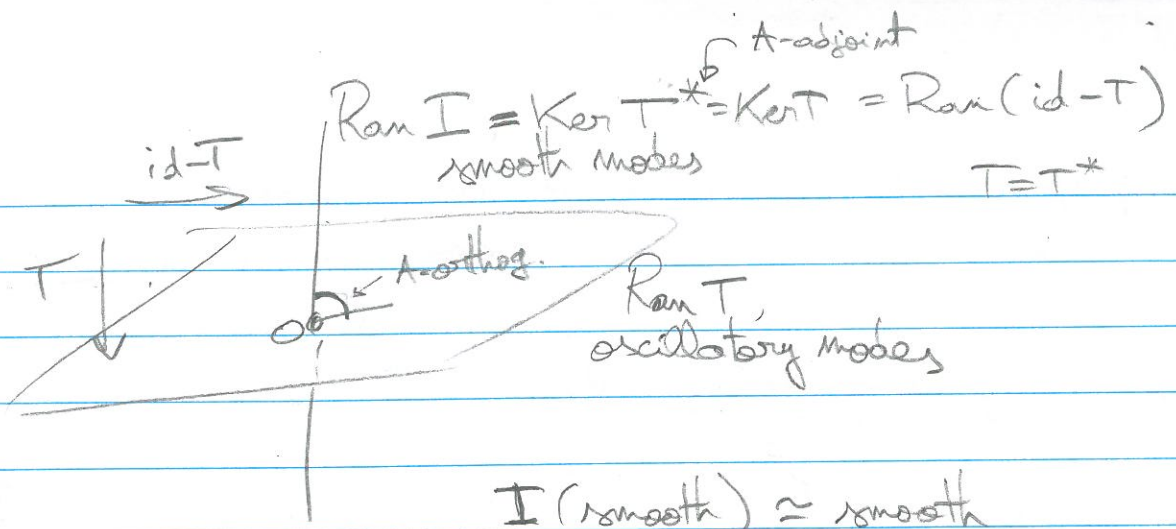 A-adjoint
Ran I = Ker T* = Ker T = Ran(id-T)
smooth modes
T=T*
id-T
T
A-orthog.
O
Ran T,
oscillatory modes
I (smooth) ≃ smooth